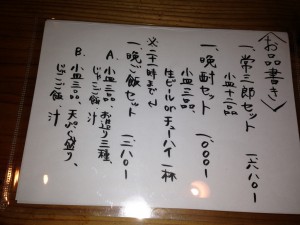 〈お品書き〉
一、常三郎セット 一、六八〇ー
小皿十二品
一、晩酌セット 一、〇〇〇ー
小皿三品
生ビール or チューハイ 一杯
※二十一時まで
一、晩ご飯セット 一、二八〇ー
A. 小皿三品、お造り三種、
じゃこご飯、汁
B. 小皿三品、天ぷら盛り、
じゃこご飯、汁